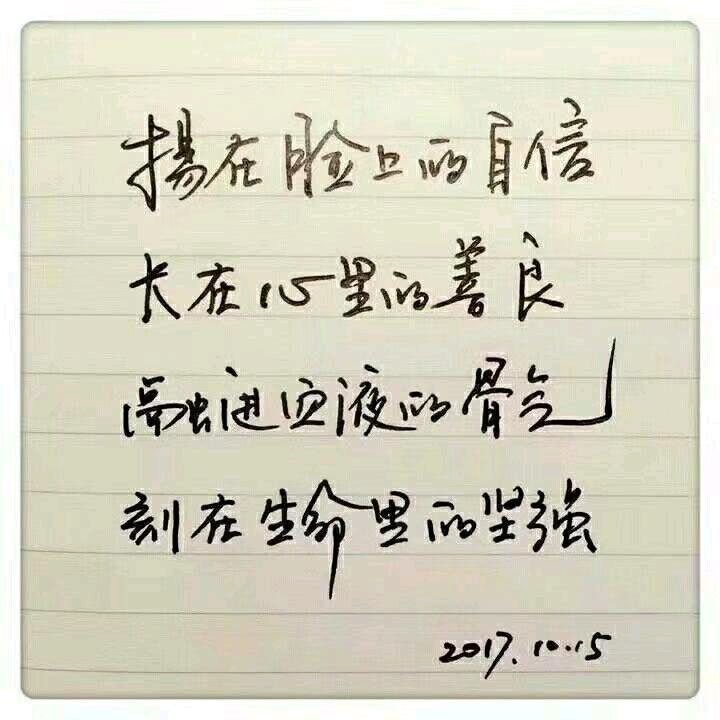 揚在脸上的自信
长在心里的善良
融进血液的骨气
刻在生命里的坚强
2017.10.15